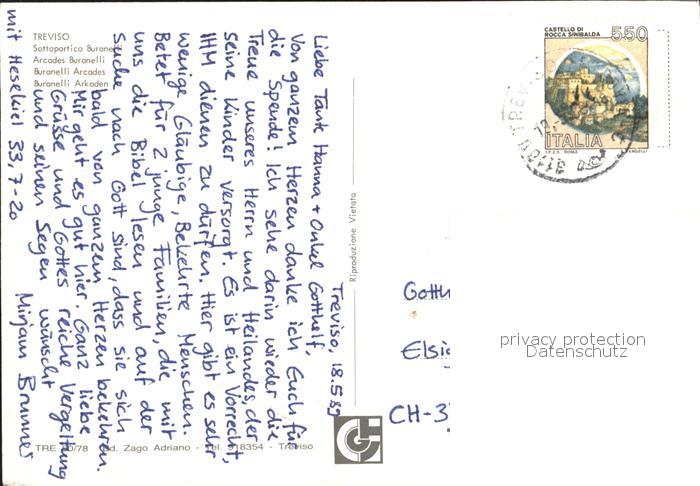 TREVISO
Sottoportico Buranelli
Arcades Buranelli
Buranelli Arcades
Buranelli Arkaden
Treviso, 18.5.89
Liebe Tante Hanna + Onkel Gotthelf,
Von ganzem Herzen danke ich Euch für
die Spende! Ich sehe darin wieder die
Treue unseres Herrn und Heilandes, der
seine Kinder versorgt. Es ist ein Vorrecht,
IHM dienen zu dürfen. Hier gibt es sehr
wenige Gläubige, Bekehrte Menschen.
Betet für 2 junge Familien, die mit
uns die Bibel lesen und auf der
Suche nach Gott sind, dass sie sich
bald von ganzem Herzen bekehren.
Mir geht es gut hier. Ganz liebe
Grüsse und Gottes reiche Vergeltung
und seinen Segen wünscht
Mirjam Brunner
mit Hesekiel 33,7-20
Riproduzione Vietata
CASTELLO DI
ROCCA SINIBALDA
550
ITALIA
I.P.Z.S. ROMA
TREVISO
Gotth
Elsig
CH-3
privacy protection
Datenschutz
Ed. Zago Adriano - Tel. 918354 - Treviso